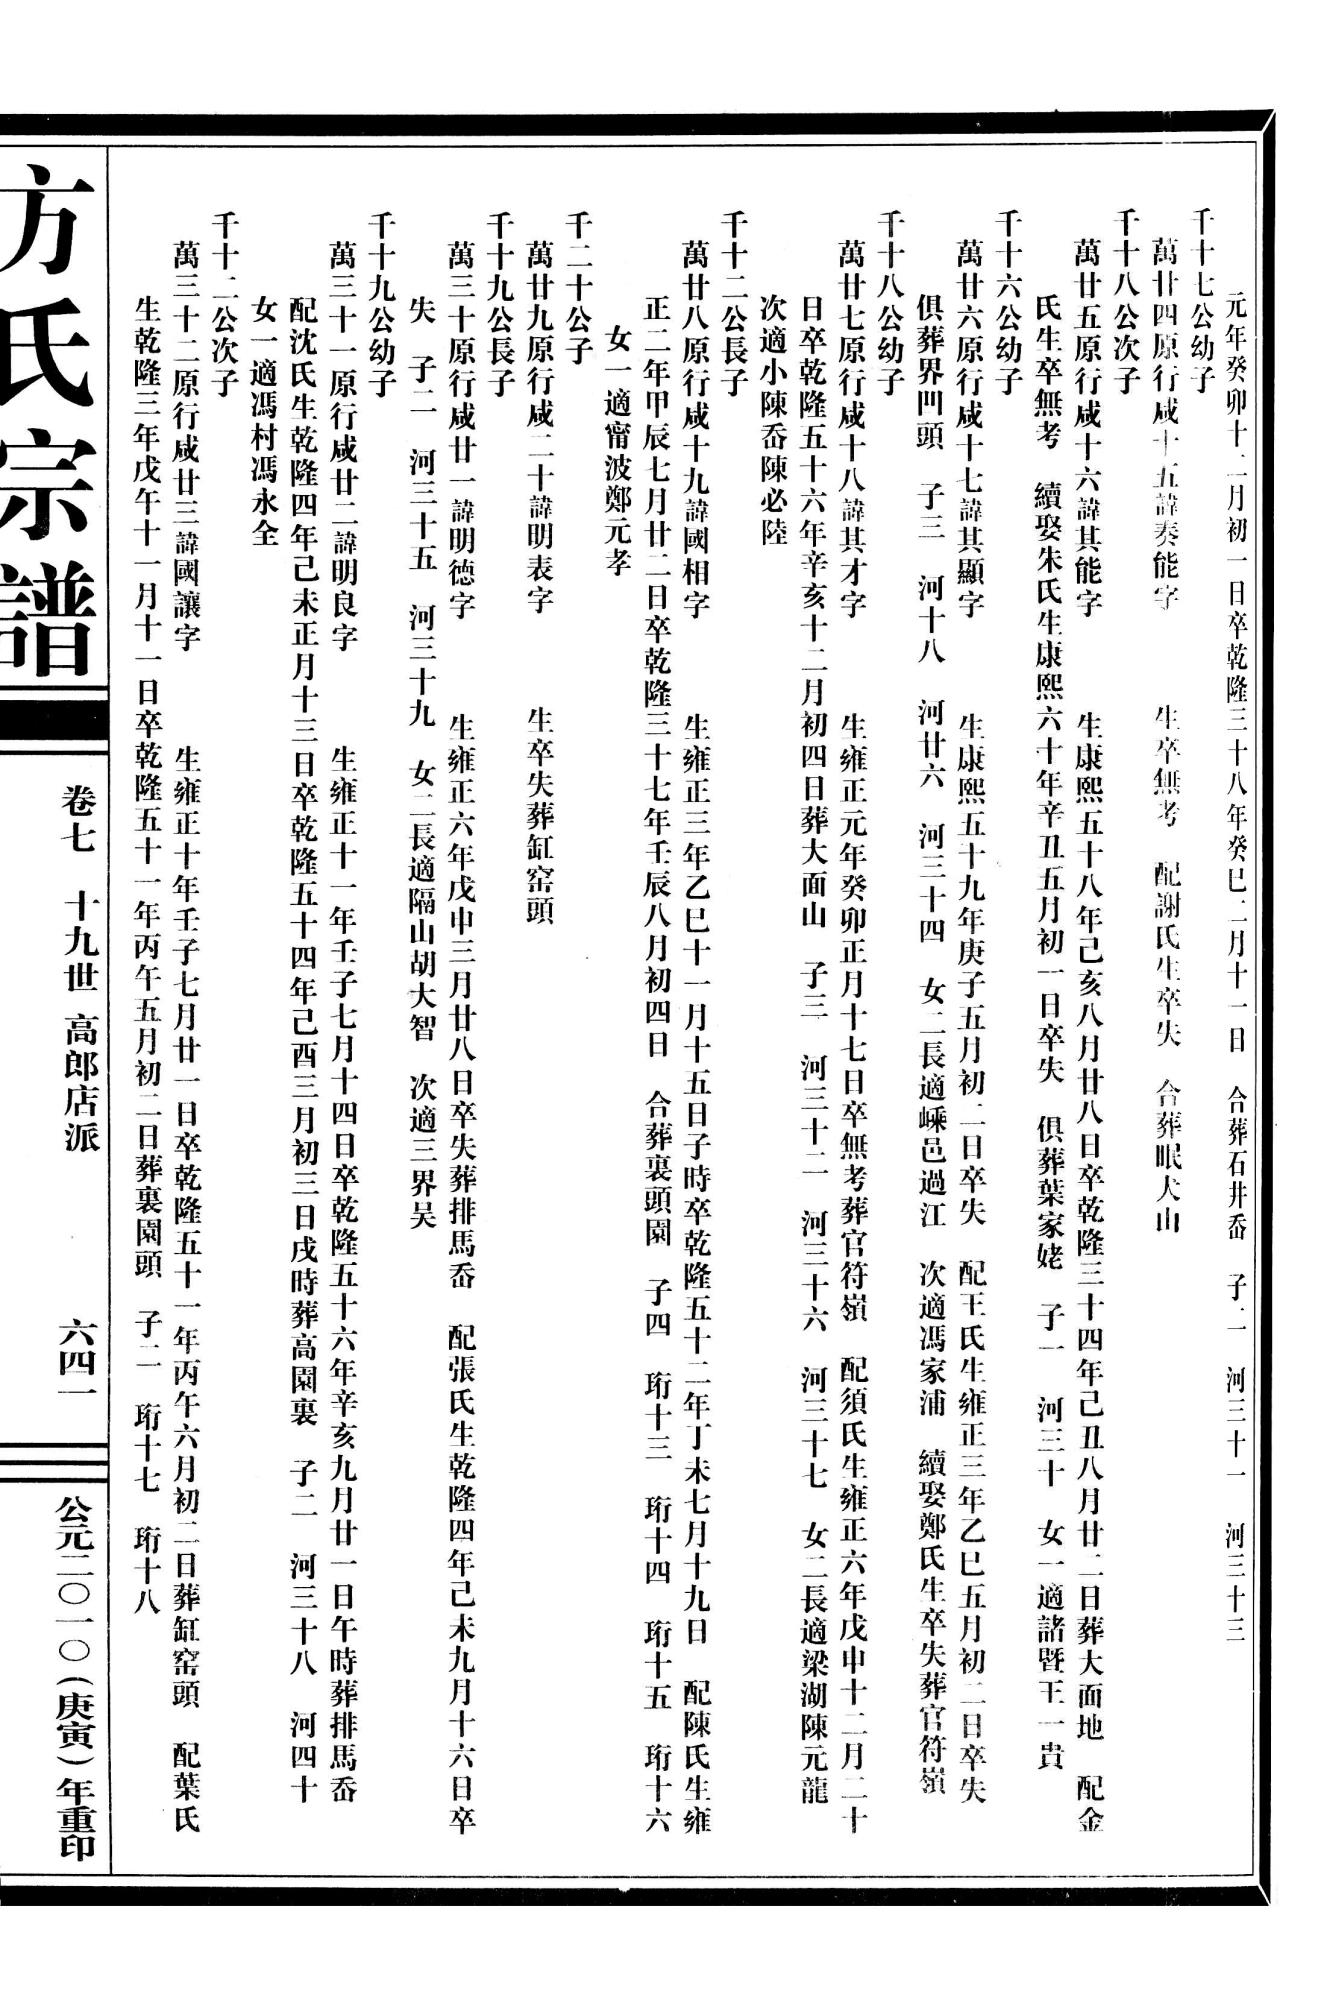 元年癸卯十二月初一日卒乾隆三十八年癸巳二月十一日　合葬石井岙　子二　河三十一　河三十三
千十七公幼子
萬廿四原行咸十五諱奏能字　生卒無考　配謝氏生卒失　合葬眠犬山
千十八公次子
萬廿五原行咸十六諱其能字　生康熙五十八年己亥八月廿八日卒乾隆三十四年己丑八月廿二日葬大面地　配金
氏生卒無考　續娶朱氏生康熙六十年辛丑五月初一日卒失　俱葬葉家姥　子一　河三十　女一適諸暨王一貴
千十六公幼子
萬廿六原行咸十七諱其顯字　生康熙五十九年庚子五月初二日卒失　配王氏生雍正三年乙巳五月初二日卒失
俱葬界凹頭　子三　河十八　河廿六　河三十四　女二長適嵊邑過江　次適馮家浦　續娶鄭氏生卒失葬官符嶺
千十八公幼子
萬廿七原行咸十八諱其才字　生雍正元年癸卯正月十七日卒無考葬官符嶺　配須氏生雍正六年戊申十二月二十
日卒乾隆五十六年辛亥十二月初四日葬大面山　子三　河三十二　河三十六　河三十七　女二長適梁湖陳元龍
次適小陳岙陳必陸
千十二公長子
萬廿八原行咸十九諱國相字　生雍正三年乙巳十一月十五日子時卒乾隆五十二年丁未七月十九日　配陳氏生雍
正二年甲辰七月廿二日卒乾隆三十七年壬辰八月初四日　合葬裏頭園　子四　珩十三　珩十四　珩十五　珩十六
女一適甯波鄭元孝
千二十公子
萬廿九原行咸二十諱明表字　生卒失葬缸窑頭
千十九公長子
萬三十原行咸廿一諱明德字　生雍正六年戊申三月廿八日卒失葬排馬岙　配張氏生乾隆四年己未九月十六日卒
失　子二　河三十五　河三十九　女二長適隔山胡大智　次適三界吴
千十九公幼子
萬三十一原行咸廿二諱明良字　生雍正十一年壬子七月十四日卒乾隆五十六年辛亥九月廿一日午時葬排馬岙
配沈氏生乾隆四年己未正月十三日卒乾隆五十四年己酉三月初三日戌時葬高園裏　子二　河三十八　河四十
女一適馮村馮永全
千十二公次子
萬三十二原行咸廿三諱國讓字　生雍正十年壬子七月廿一日卒乾隆五十一年丙午六月初二日葬缸窑頭　配葉氏
生乾隆三年戊午十一月十一日卒乾隆五十一年丙午五月初二日葬裏園頭　子二　珩十七　珩十八
方氏宗譜
卷七　十九世　高郎店派
六四一
公元二〇一〇（庚寅）年重印